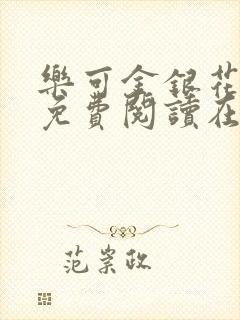 樂可金銀花
免費閱讀在
范崇政